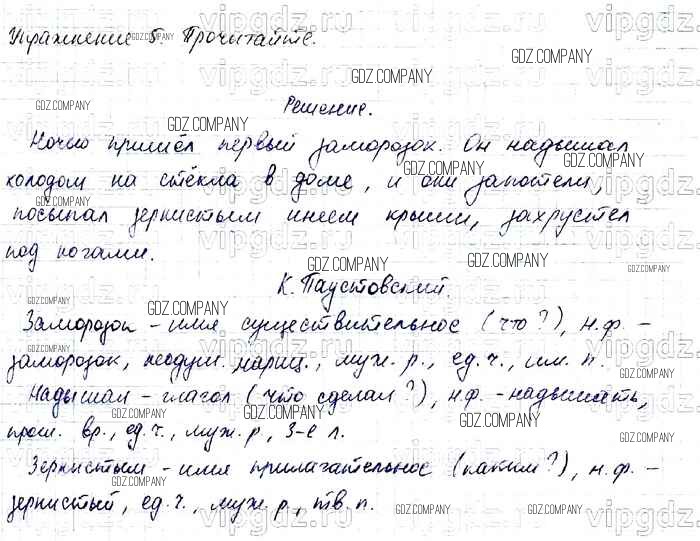 Упражнение 5. Прочитайте.
Решение.
Ночью пришёл первый заморозок. Он надышал
холодом на стёкла в доме, и они запотели,
посыпал зернистым инеем крыши, захрустел
под ногами.
К. Паустовский.
Заморозок - имя существительное (что?), н.ф. -
заморозок, неодуш. нариц., муж. р., ед. ч., им. п.
Надышал - глагол (что сделал?), н.ф. - надышать,
прош. вр., ед. ч., муж. р, 3-е л.
Зернистым - имя прилагательное (каким?), н.ф. -
зернистый, ед. ч., муж. р., тв. п.
GDZ.COMPANY
vipgdz.ru